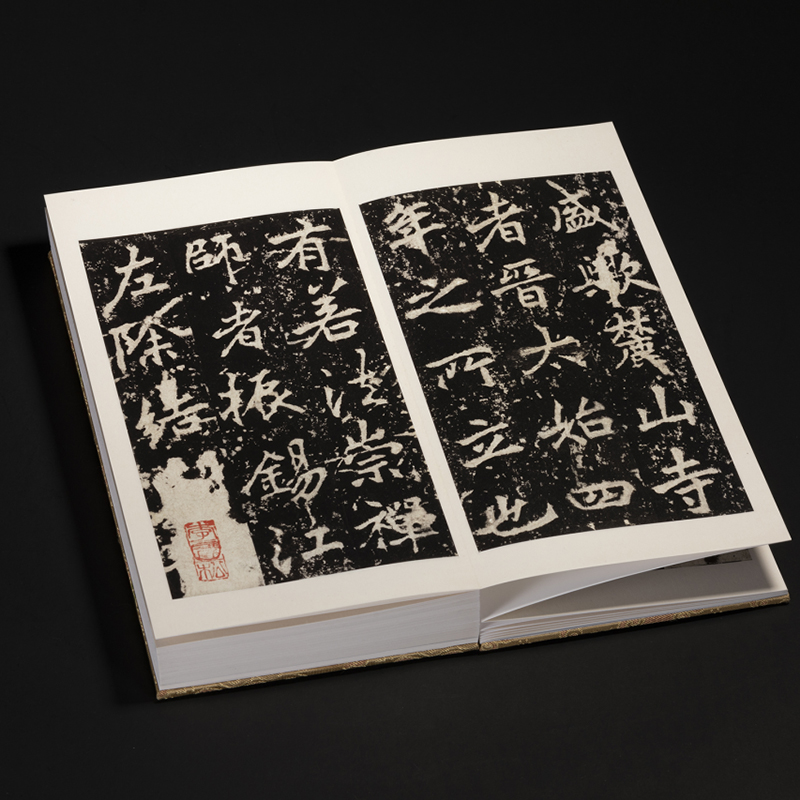 盛歟麓山寺
者晉太始四
年之所立也
有若法崇禪
師者振錫江
左除結